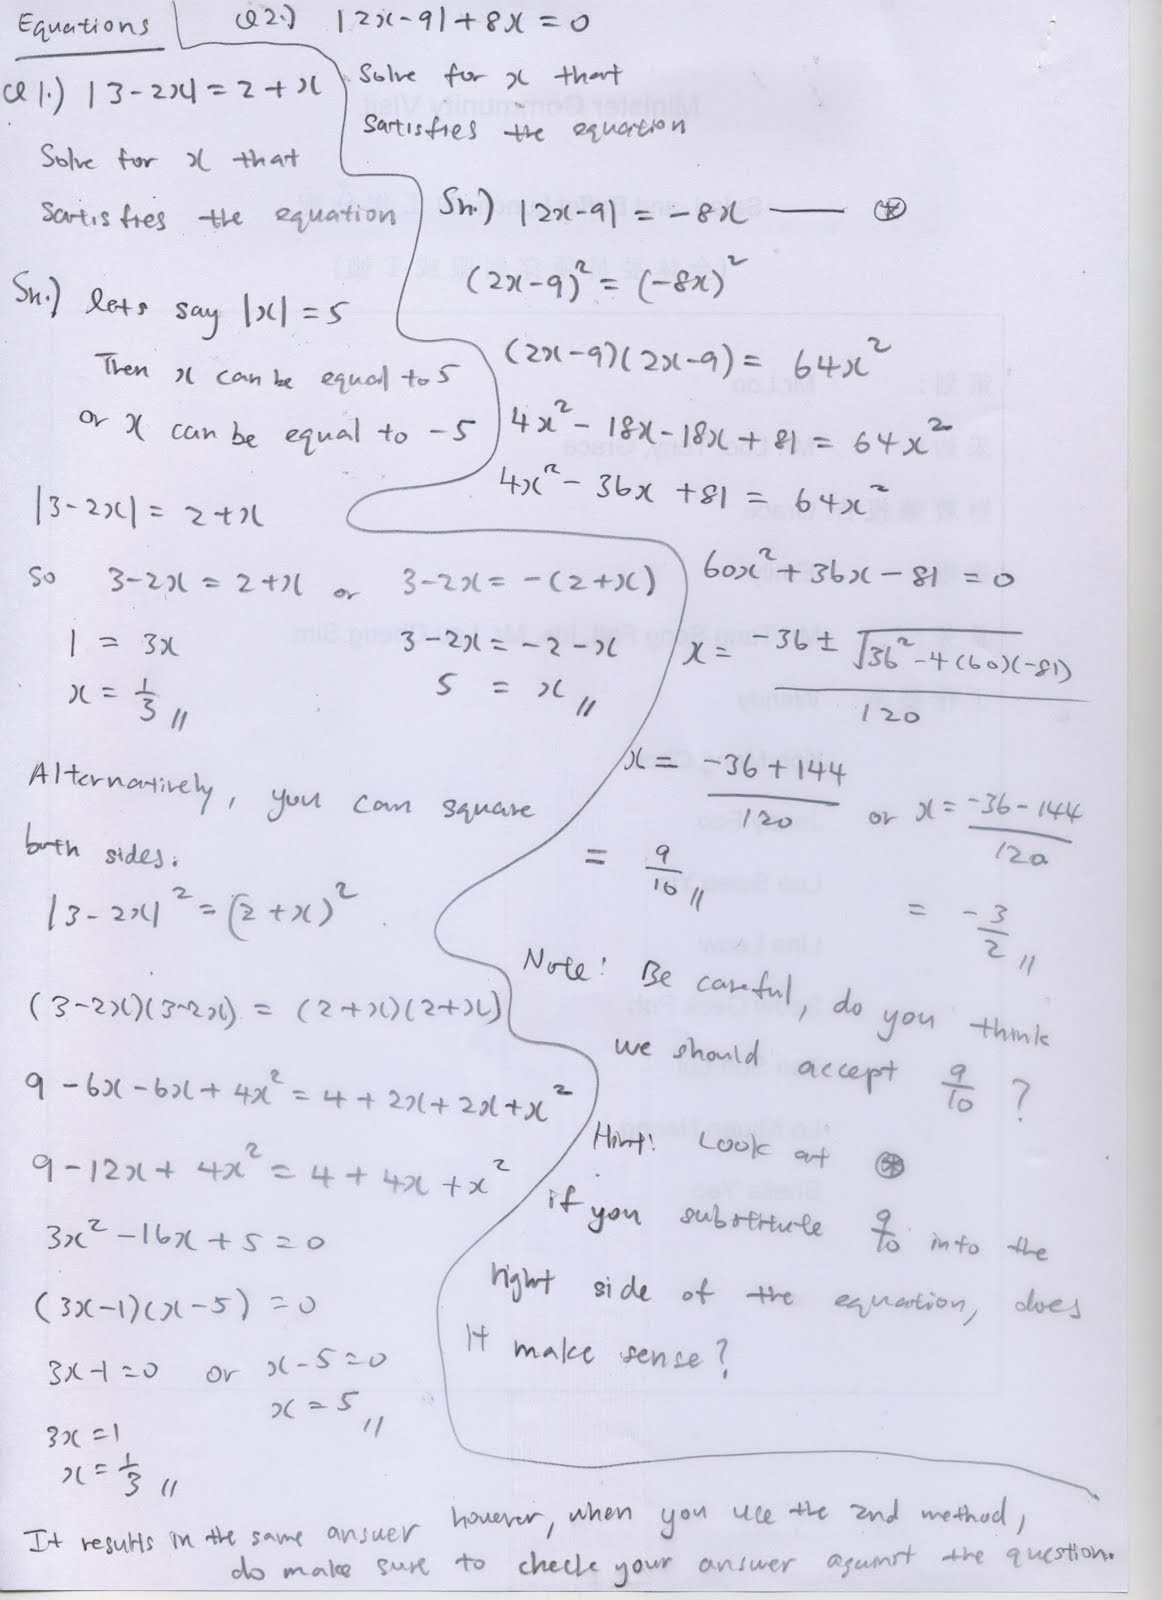 Equations
Q1.) |3-2x| = 2+x
Solve for x that
satisfies the equation
Sn.) lets say |x| = 5
Then x can be equal to 5
or x can be equal to -5
|3-2x| = 2+x
so 3-2x = 2+x or 3-2x = -(2+x)
1 = 3x 3-2x = -2-x
x = 1/3 // 5 = x //
Alternatively, you can square
both sides.
|3-2x|² = (2+x)²
(3-2x)(3-2x) = (2+x)(2+x)
9-6x-6x+4x² = 4+2x+2x+x²
9-12x+4x² = 4+4x+x²
3x²-16x+5=0
(3x-1)(x-5) = 0
3x-1=0 or x-5=0
x=5 //
3x=1
x=1/3 //
Q2.) |2x-9|+8x=0
Solve for x that
satisfies the equation
Sn.) |2x-9| = -8x — ⊛
(2x-9)² = (-8x)²
(2x-9)(2x-9) = 64x²
4x²-18x-18x+81 = 64x²
4x²-36x+81 = 64x²
60x²+36x-81=0
x = (-36 ± √(36²-4(60)(-81)))/120
x = (-36+144)/120 or x = (-36-144)/120
= 9/10 // = -3/2 //
Note! Be careful, do you think
we should accept 9/10 ?
Hint! Look at ⊛
if you substitute 9/10 into the
right side of the equation, does
it make sense?
It results in the same answer however, when you use the 2nd method,
do make sure to check your answer against the question.